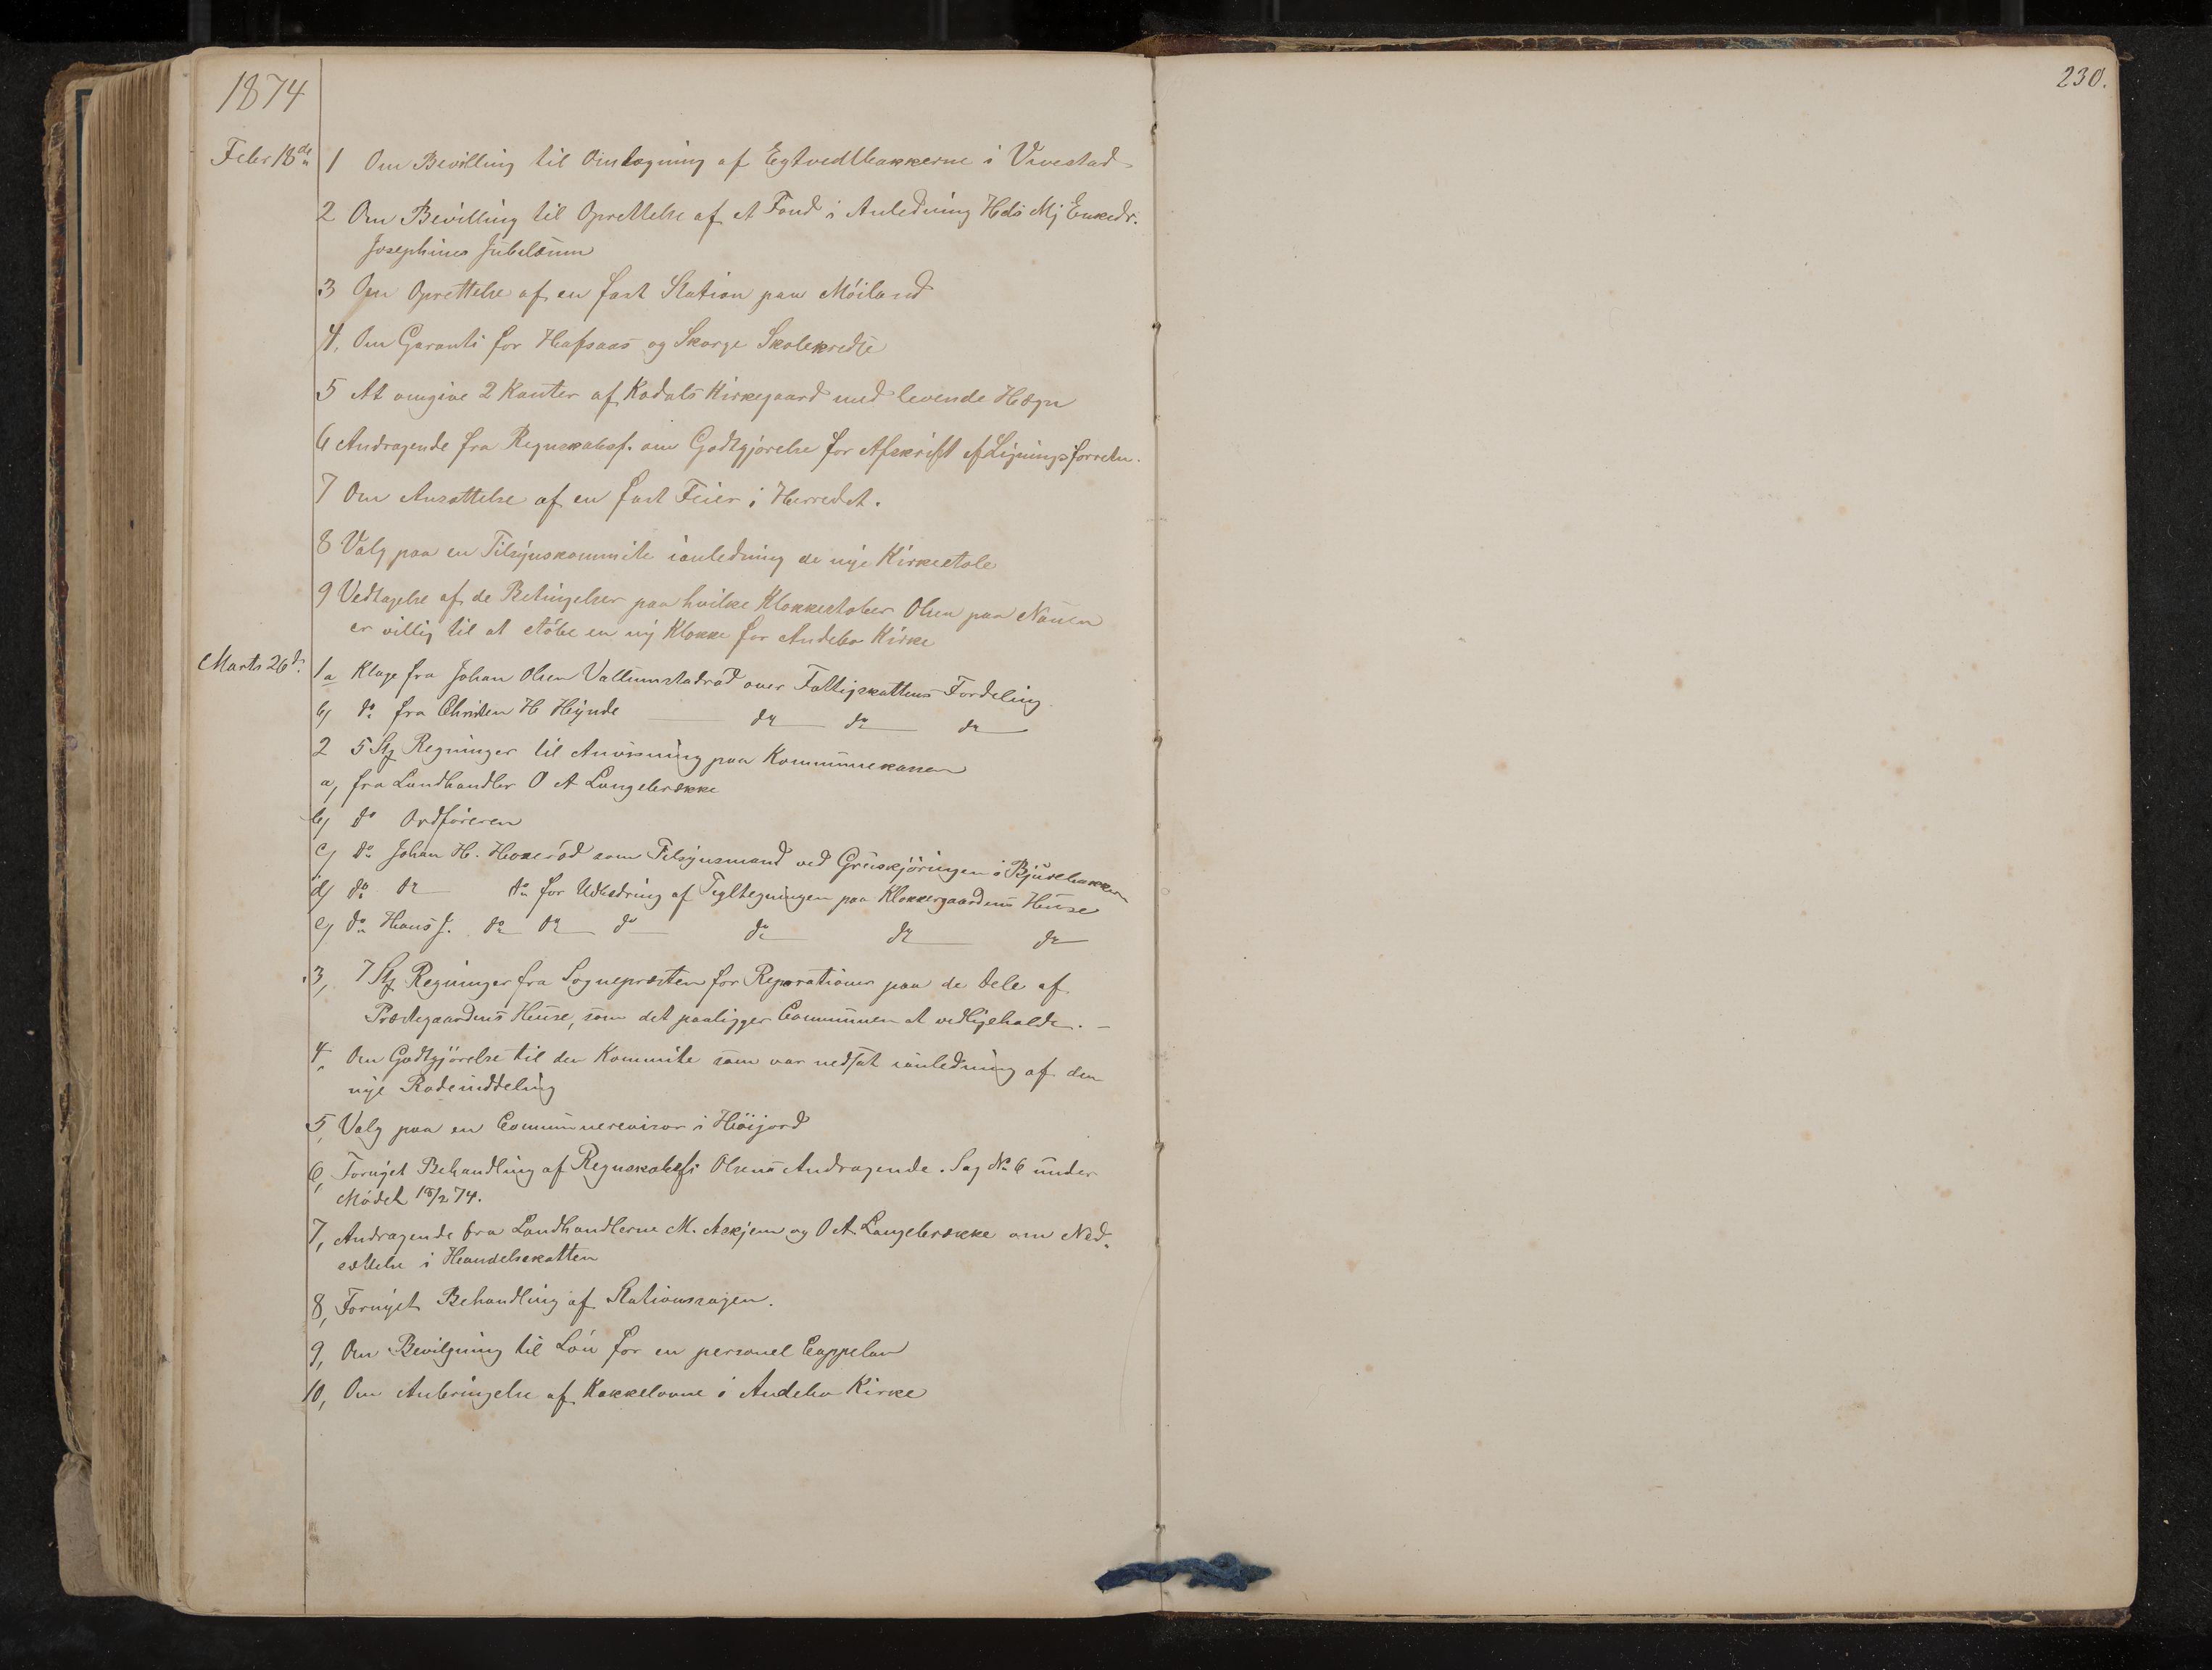 1874
230.
Febr 18de 1 Om Bevilling til Omlægning af Egtvedtbakkerne i Vivestad
2 Om Bevilling til Oprettelse af et Fond i Anledning Hds Mj Enkedr.
Josephines Jubelæum
3 Om Oprettelse af en fast Station paa Möiland
4, Om Garanti for Hafsaas og Skorge Skolekredse
5 At omgive 2 Kanter af Kodals Kirkegaard med levende Hægn
6 Andragende fra Regnskabsf. om Godtgjørelse for Afskrift af Ligningsforretn.
7 Om Ansættelse af en fast Feier i Herredet.
8 Valg paa en Tilsynskommite ianledning de nye Kirkestole
9 Vedtagelse af de Betingelser paa hvilke Klokkestøber Olsen paa Nauen
er villig til at støbe en ny Klokke for Andebo Kirke
Marts 26d. 1a Klage fra Johan Olsen Vallumstadrød over Fattigskattens Fordeling
b, do fra Christen H Hynde do do do
2 5 Stk Regninger til Anvisning paa Kommunekassen
a, fra Landhandler O A Langebrække
b, do Ordføreren
c, do Johan H. Hoxerød som Tilsynsmand ved Gruskjøringen i Bjuskbakken
d, do do do for Udbedring af Tegltegningen paa Klokkergaardens Huse
e, do Hans J. do do do do do do
3, 7 Stk Regninger fra Sognepresten for Reparationer paa de Dele af
Præstegaardens Huse, som det paaligger Communen at vedligeholde. -
4, Om Godtgjørelse til den Kommite som var nedsat ianledning af den
nye Rodeinddeling
5, Valg paa en Communerevisor i Høijord
6, Fornyet Behandling af Regnskabsfs Olsens Andragende. Sag No 6 under
Mødet 18/2 74.
7, Andragende fra Landhandlerne M. Askjem og O A Langebrække om Ned-
sættelse i Handelsskatten
8, Fornyet Behandling af Stationssagen.
9, Om Bevilgning til Løn for en personel Cappelan
10, Om Anbringelse af Kakkelovne i Andebo Kirke